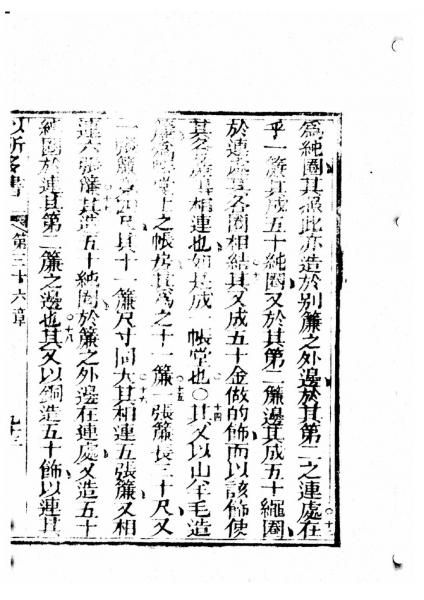 為純圈其照此亦造於別簾之外邊於其第二之連處在
乎一簾其成五十純圈又於其第二簾邊其成五十繩圈
於連處其各圈相結其又成五十金做的飾而以該飾使
其各簾相連也如是成一帳堂也○其又以山羊毛造
簾為堂上之帳房其為之十一簾一張簾長三十尺又
一張簾四尺其十一簾尺寸同大其相連五張簾又相
連六張簾其造五十純圈於簾之外邊在連處又造五十
純圈於連其第二簾之邊也其又以銅造五十飾以連其
第三十六章